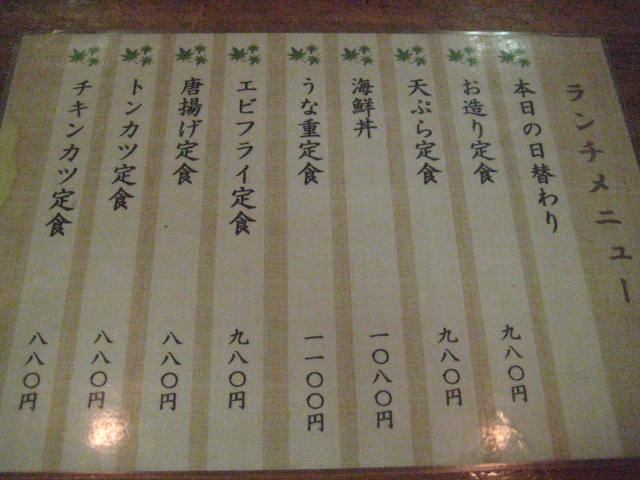 ランチメニュー
本日の日替わり
お造り定食 九八〇円
天ぷら定食 九八〇円
海鮮丼 一〇八〇円
うな重定食 一一〇〇円
エビフライ定食 九八〇円
唐揚げ定食 八八〇円
トンカツ定食 八八〇円
チキンカツ定食 八八〇円